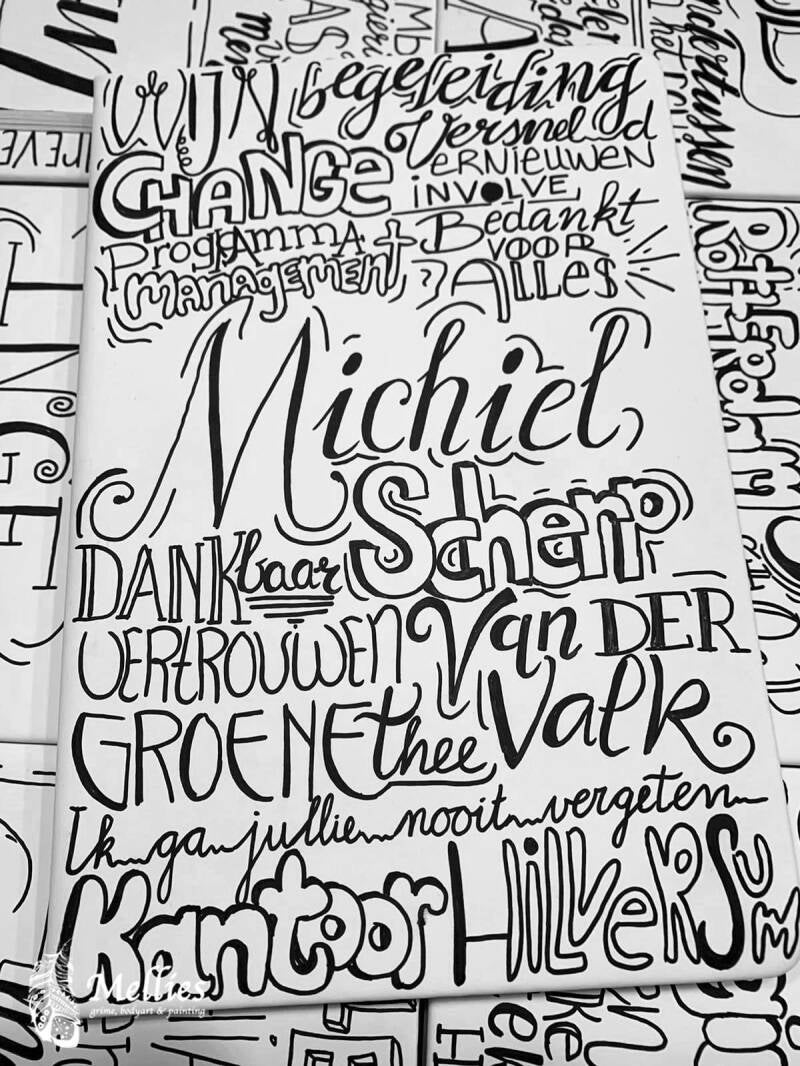 WIJN begeleiding
Versnellend
CHANGE VERNIEUWEN
INVOLVE
Programma Bedankt
MANAGEMENT VOOR
ALLES
Michiel
Scherp
DANKbaar
VERTROUWEN Van DER
GROENE thee Valk
Ik ga jullie nooit vergeten
Kantoor HILVERSUM
Mellies
grime, bodyart & painting
Rotterdam